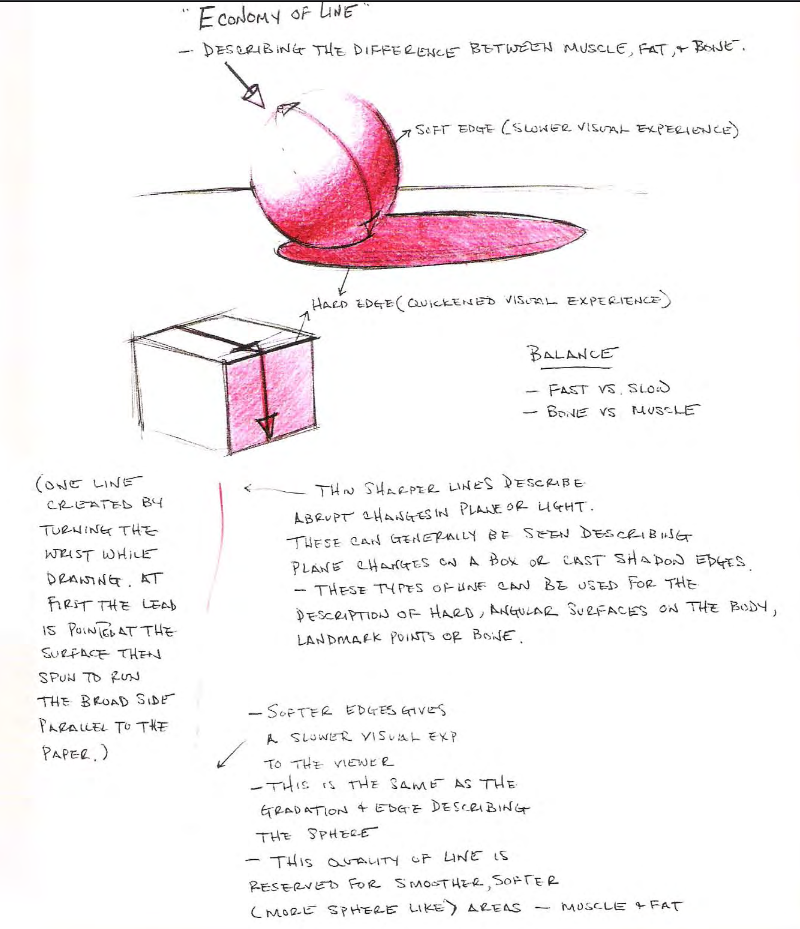 "ECONOMY OF LINE"
— DESCRIBING THE DIFFERENCE BETWEEN MUSCLE, FAT, + BONE.
SOFT EDGE (SLOWER VISUAL EXPERIENCE)
HARD EDGE (QUICKENED VISUAL EXPERIENCE)
BALANCE
— FAST VS. SLOW
— BONE VS MUSCLE
(ONE LINE
CREATED BY
TURNING THE
WRIST WHILE
DRAWING. AT
FIRST THE LEAD
IS POINTED AT THE
SURFACE THEN
SPUN TO RUN
THE BROAD SIDE
PARALLEL TO THE
PAPER.)
— THIN SHARPER LINES DESCRIBE
ABRUPT CHANGES IN PLANE OR LIGHT.
THESE CAN GENERALLY BE SEEN DESCRIBING
PLANE CHANGES ON A BOX OR CAST SHADOW EDGES.
— THESE TYPES OF LINE CAN BE USED FOR THE
DESCRIPTION OF HARD, ANGULAR SURFACES ON THE BODY,
LANDMARK POINTS OR BONE.
— SOFTER EDGES GIVES
A SLOWER VISUAL EXP
TO THE VIEWER
— THIS IS THE SAME AS THE
GRADATION + EDGE DESCRIBING
THE SPHERE
— THIS QUALITY OF LINE IS
RESERVED FOR SMOOTHER, SOFTER
(MORE SPHERE LIKE) AREAS — MUSCLE + FAT